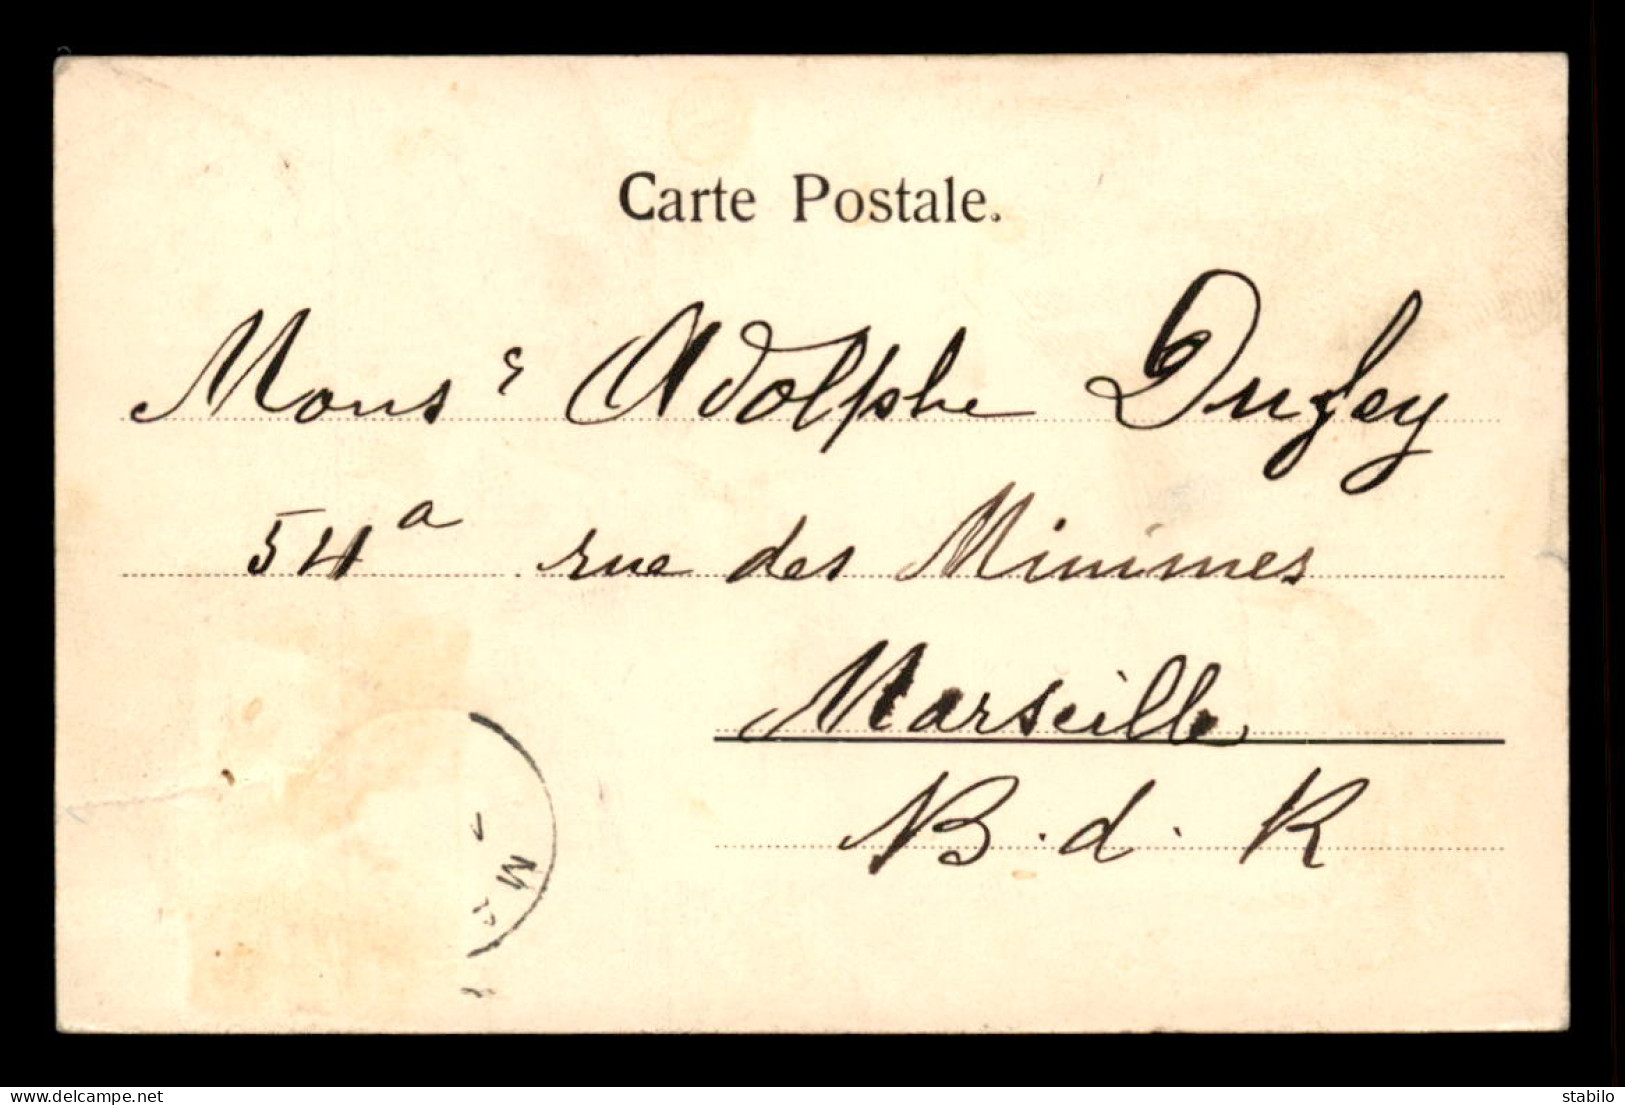 Carte Postale.
Monsr Adolphe Dufey
54a rue des Minimes
Marseille
B. d. R
Ma
www.delcampe.net
stabilo